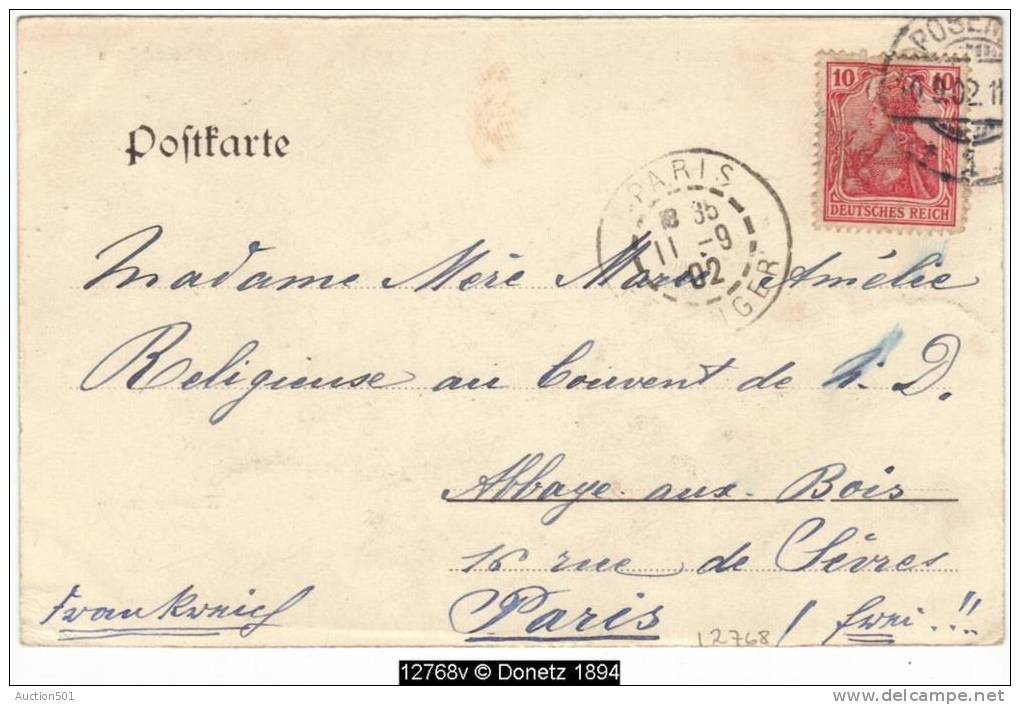 POSEN
10 10
10.9.02.11
DEUTSCHES REICH
Postkarte
PARIS
35
11 -9
02
Madame Mère Marie Amélie
Religieuse au Couvent de N. D.
Abbaye-aux-Bois
16 rue de Sèvres
Frankreich Paris / frei!!
12768
12768v © Donetz 1894
Auction501
delcampe.net